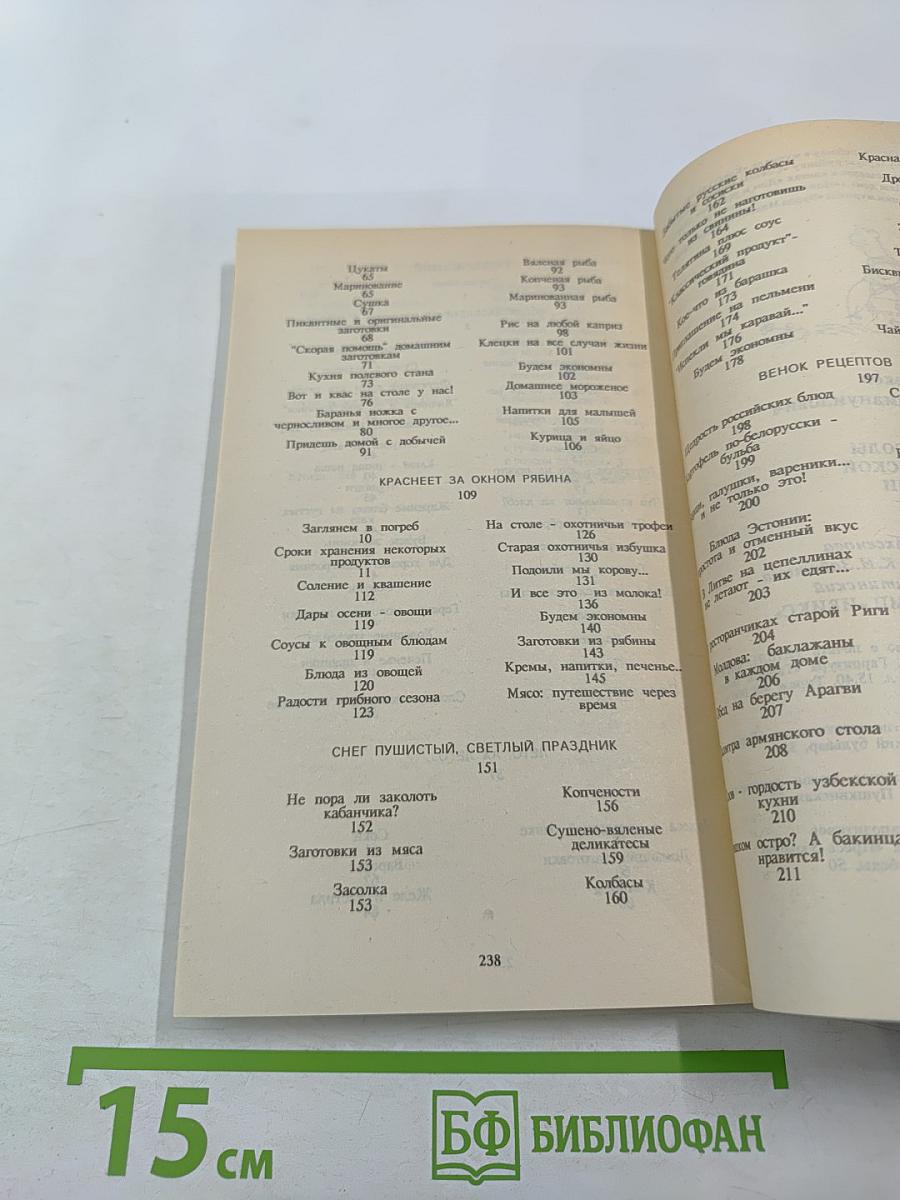 Цукаты
65
Маринование
65
Сушка
67
Пикантные и оригинальные
заготовки
68
"Скорая помощь" домашним
заготовкам
71
Кухня полевого стана
73
Вот и квас на столе у нас!
76
Баранья ножка с
черносливом и многое другое...
80
Придешь домой с добычей
91
Вяленая рыба
92
Копченая рыба
93
Маринованная рыба
93
Рис на любой каприз
98
Клецки на все случаи жизни
101
Будем экономны
102
Домашнее мороженое
103
Напитки для малышей
105
Курица и яйцо
106
КРАСНЕЕТ ЗА ОКНОМ РЯБИНА
109
Заглянем в погреб
10
Сроки хранения некоторых
продуктов
11
Соление и квашение
112
Дары осени - овощи
119
Соусы к овощным блюдам
119
Блюда из овощей
120
Радости грибного сезона
123
На столе - охотничьи трофеи
126
Старая охотничья избушка
130
Подоили мы корову...
131
И все это из молока!
136
Будем экономны
140
Заготовки из рябины
143
Кремы, напитки, печенье..
145
Мясо: путешествие через
время
СНЕГ ПУШИСТЫЙ, СВЕТЛЫЙ ПРАЗДНИК
151
Не пора ли заколоть
кабанчика?
152
Заготовки из мяса
153
Засолка
153
Копчености
156
Сушено-вяленые
деликатесы
159
Колбасы
160
238
русские колбасы
и сосиски
162
только не наготовишь
из свинины!
164
Телятина плюс соус
169
"Классический продукт"-
говядина
171
Кое-что из барашка
173
на пельмени
174
мы каравай..."
176
Будем экономны
178
ВЕНОК РЕЦЕПТОВ
197
Щедрость российских блюд
198
по-белорусски -
бульба
199
галушки, вареники...
и не только это!
200
Блюда Эстонии:
и отменный вкус
202
В Литве на цепеллинах
не летают - их едят...
203
ресторанчиках старой Риги
204
Молдова: баклажаны
в каждом доме
206
на берегу Арагви
207
армянского стола
208
- гордость узбекской
кухни
210
остро? А бакинца
нравится!
211
Красна
Бискв
Чай
15 см
БФ БИБЛИОФАН